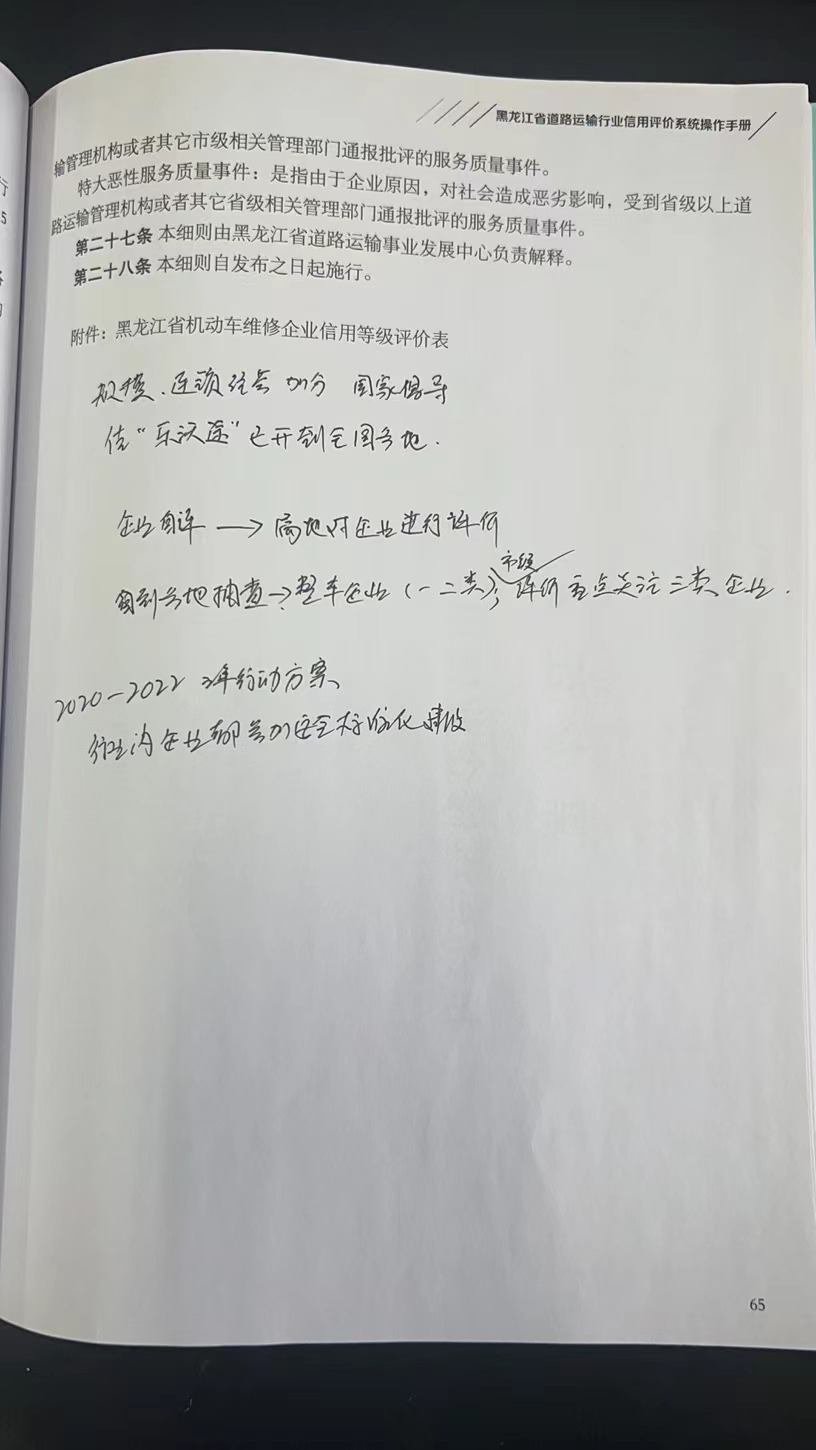 黑龙江省道路运输行业信用评价系统操作手册
输管理机构或者其它市级相关管理部门通报批评的服务质量事件。
特大恶性服务质量事件：是指由于企业原因，对社会造成恶劣影响，受到省级以上道
路运输管理机构或者其它省级相关管理部门通报批评的服务质量事件。
第二十七条 本细则由黑龙江省道路运输事业发展中心负责解释。
第二十八条 本细则自发布之日起施行。
附件：黑龙江省机动车维修企业信用等级评价表
规模、连锁经营 加分 国家倡导
"乐沃途"已开到全国各地.
企业自评 → 属地对企业进行评价
到各地抽查→整车企业（一二类）；市级评价重点关注三类企业.
2020-2022 3年行动方案
企业都参加安全标准化建设
65